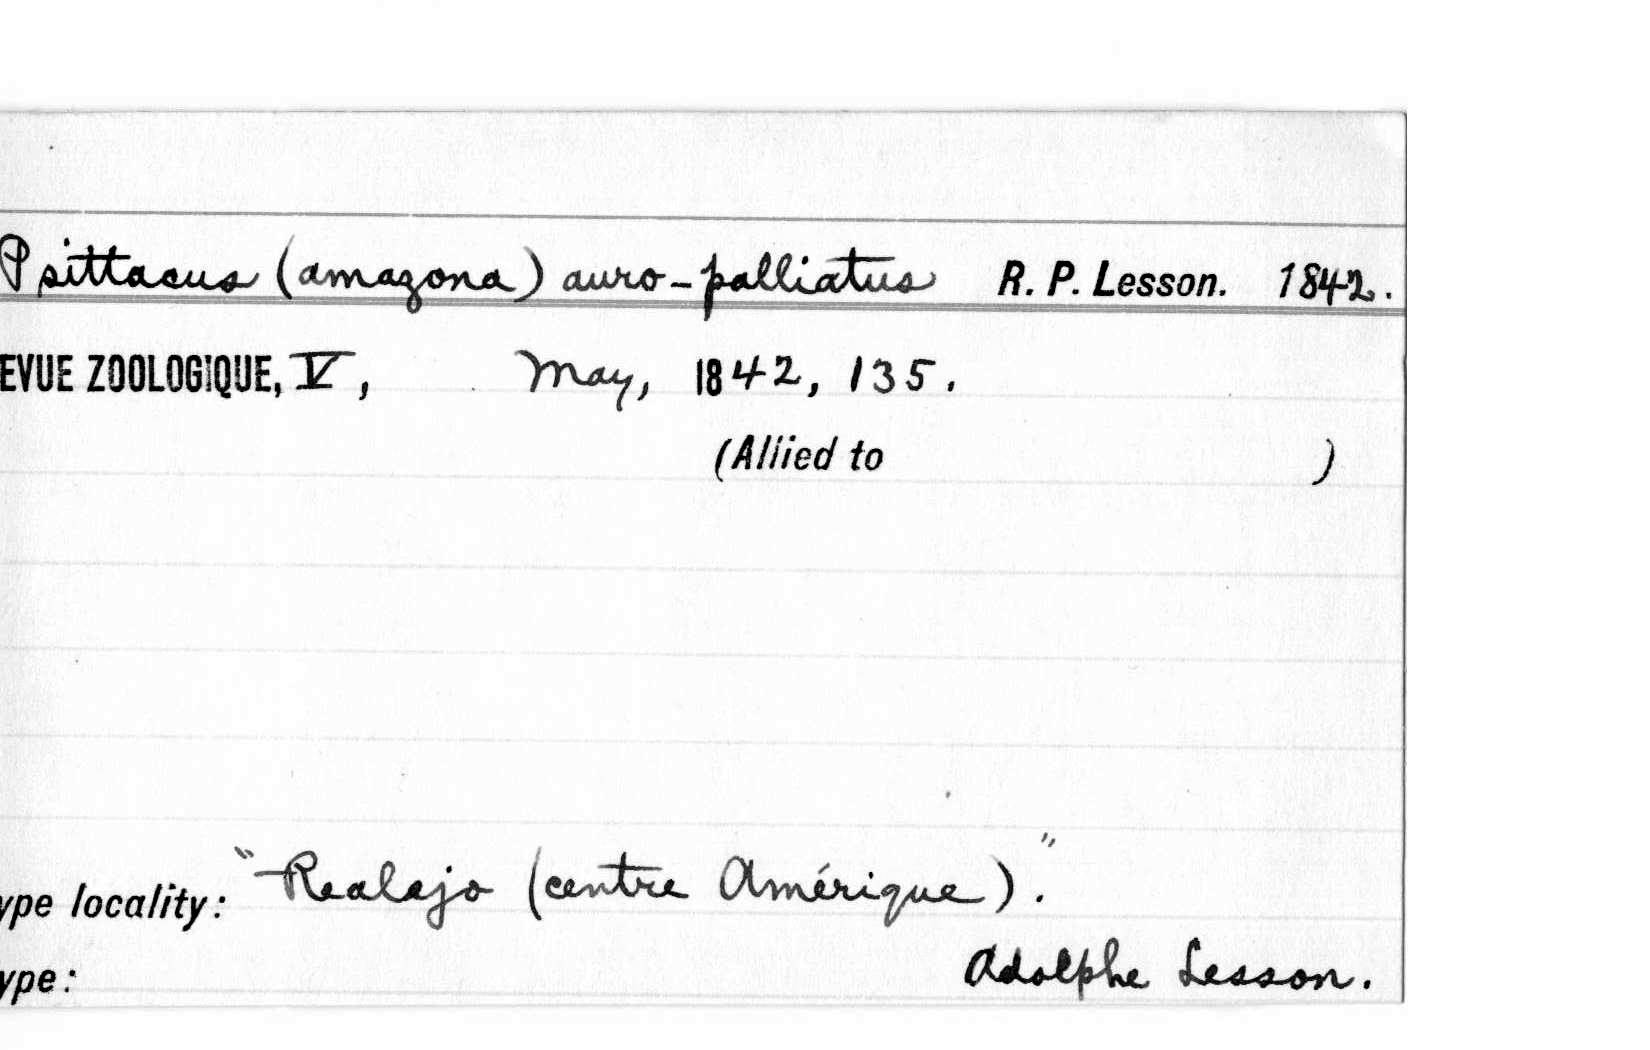 Psittacus (amazona) auro-palliatus R. P. Lesson. 1842.
EVUE ZOOLOGIQUE, V, May, 1842, 135.
(Allied to )
ype locality: "Realejo (centre Amérique)."
ype: Adolphe Lesson.